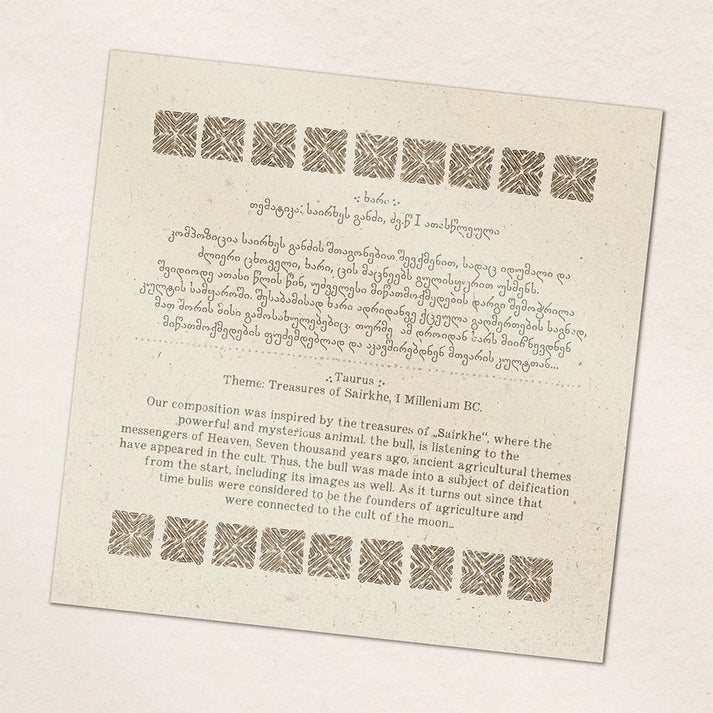 ხარი
თემატიკა: საირხეს განძი, ძვ.წ I ათასწლეული
კომპოზიცია საირხეს განძის შთაგონებით შევქმენით, სადაც იდუმალი და
ძლიერი ცხოველი, ხარი, ცის მაცნეებს გულისყურით უსმენს.
შვიდიოდე ათასი წლის წინ, უძველესი მიწათმოქმედების დარგი შემოჭრილა
კულტის სამყაროში. შესაბამისად ხარი ადრიდანვე ქცეულა გაღმერთების საგნად,
მათ შორის მისი გამოსახულებებიც. თურმე ამ დროიდან ხარს მიიჩნევდნენ
მიწათმოქმედების ფუძემდებლად და აკავშირებდნენ მთვარის კულტთან...
Taurus
Theme: Treasures of Sairkhe, I Millenium BC.
Our composition was inspired by the treasures of „Sairkhe“, where the
powerful and mysterious animal, the bull, is listening to the
messengers of Heaven. Seven thousand years ago, ancient agricultural themes
have appeared in the cult. Thus, the bull was made into a subject of deification
from the start, including its images as well. As it turns out since that
time bulls were considered to be the founders of agriculture and
were connected to the cult of the moon...